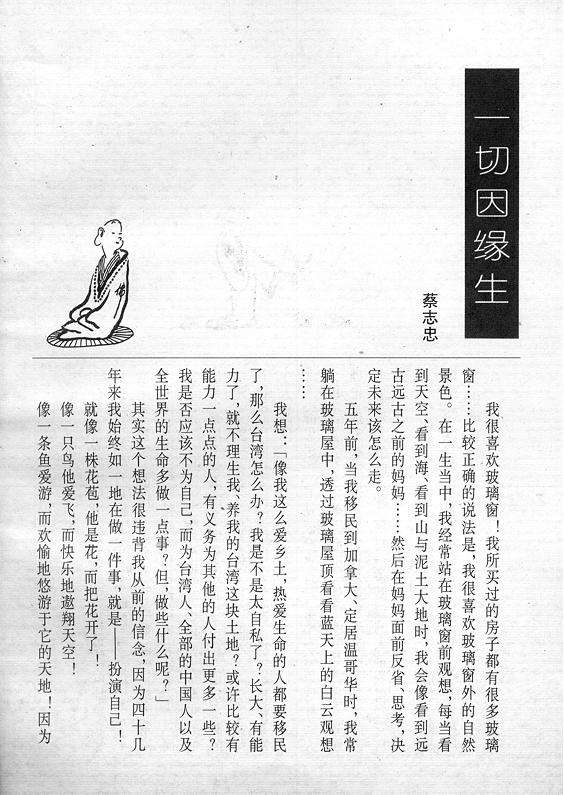 一切因缘生
蔡志忠
我很喜欢玻璃窗！我所买过的房子都有很多玻璃
窗……比较正确的说法是，我很喜欢玻璃窗外的自然
景色。在一生当中，我经常站在玻璃窗前观想，每当看
到天空、看到海、看到山与泥土大地时，我会像看到远
古远古之前的妈妈……然后在妈妈面前反省、思考，决
定未来该怎么走。
五年前，当我移民到加拿大、定居温哥华时，我常
躺在玻璃屋中，透过玻璃屋顶看看蓝天上的白云观想
……
我想：“像我这么爱乡土，热爱生命的人都要移民
了，那么台湾怎么办？我是不是太自私了？长大、有能
力了，就不理生我、养我的台湾这块土地？或许比较有
能力一点点的人，有义务为其他的人付出更多一些？
我是否应该不为自己，而为台湾人、全部的中国人以及
全世界的生命多做一点事？但，做些什么呢？”
其实这个想法很违背我从前的信念，因为四十几
年来我始终如一地在做一件事，就是——扮演自己！
就像一株花苞，他是花，而把花开了！
像一只鸟他爱飞，而快乐地遨翔天空！
像一条鱼爱游，而欢愉地悠游于它的天地！因为